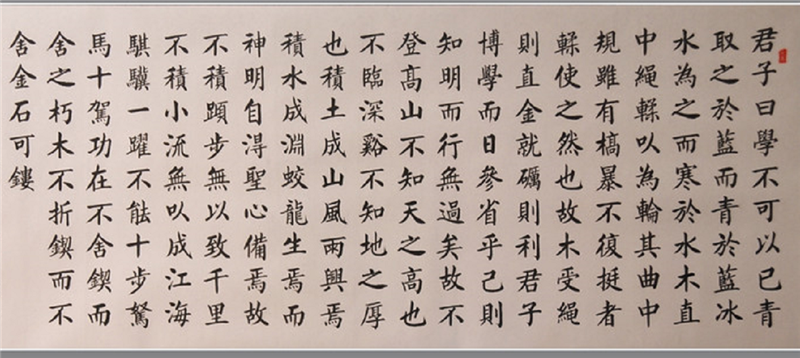 君子曰學不可以已青
取之於藍而青於藍冰
水為之而寒於水木直
中繩輮以為輪其曲中
規雖有槁暴不復挺者
輮使之然也故木受繩
則直金就礪則利君子
博學而日參省乎己則
知明而行無過矣故不
登高山不知天之高也
不臨深谿不知地之厚
也積土成山風雨興焉
積水成淵蛟龍生焉而
神明自得聖心備焉故
不積蹞步無以致千里
不積小流無以成江海
騏驥一躍不能十步駑
馬十駕功在不舍鍥而
舍之朽木不折鍥而不
舍金石可鏤